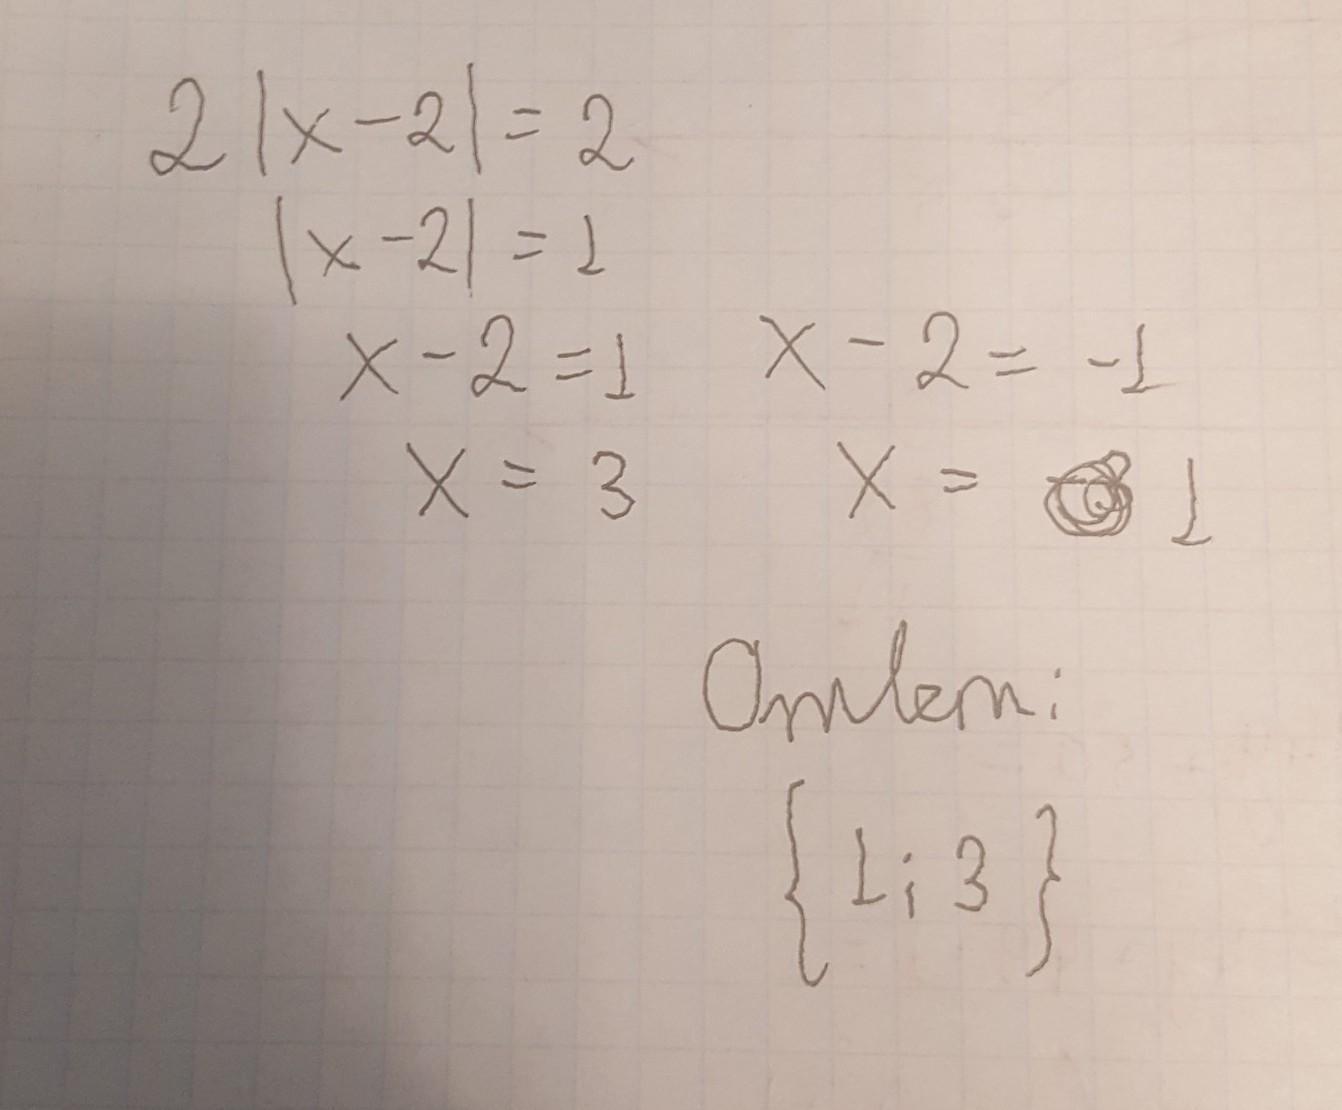 2|x-2|=2
|x-2|=1
x-2=1 x-2=-1
x=3 x=1
Ответ:
{1;3}